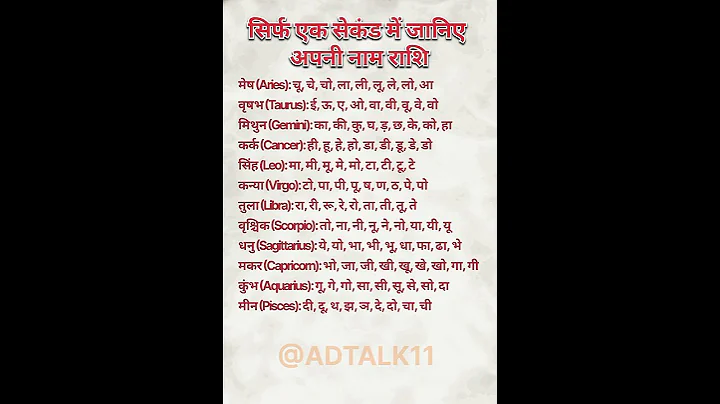 सिर्फ एक सेकंड में जानिए
अपनी नाम राशि
मेष (Aries): चू, चे, चो, ला, ली, लू, ले, लो, आ
वृषभ (Taurus): ई, ऊ, ए, ओ, वा, वी, वू, वे, वो
मिथुन (Gemini): का, की, कु, घ, ड़, छ, के, को, हा
कर्क (Cancer): ही, हू, हे, हो, डा, डी, डू, डे, डो
सिंह (Leo): मा, मी, मू, मे, मो, टा, टी, टू, टे
कन्या (Virgo): टो, पा, पी, पू, ष, ण, ठ, पे, पो
तुला (Libra): रा, री, रू, रे, रो, ता, ती, तू, ते
वृश्चिक (Scorpio): तो, ना, नी, नू, ने, नो, या, यी, यू
धनु (Sagittarius): ये, यो, भा, भी, भू, धा, फा, ढा, भे
मकर (Capricorn): भो, जा, जी, खी, खू, खे, खो, गा, गी
कुंभ (Aquarius): गू, गे, गो, सा, सी, सू, से, सो, दा
मीन (Pisces): दी, दू, थ, झ, ञ, दे, दो, चा, ची
@ADTALK11